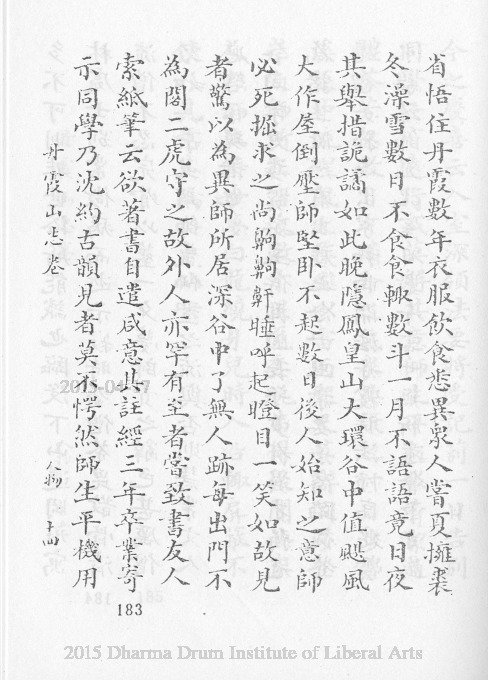 省悟住丹霞數年衣服飲食悉異衆人嘗夏擁裘
冬澡雪數日不食食輙數斗一月不語語竟日夜
其舉措詭譎如此晚隱鳳皇山大環谷中值颶風
大作屋倒壓師堅卧不起數日後人始知之意師
必死掘求之尚齁齁鼾睡呼起瞪目一笑如故見
者驚以為異師所居深谷中了無人跡每出門不
為閉二虎守之故外人亦罕有至者嘗致書友人
索紙筆云欲著書自遣咸意其註經三年卒業寄
示同學乃沈約古韻見者莫不愕然師生平機用
丹霞山志卷
人物
十四
183
2015 Dharma Drum Institute of Liberal Arts